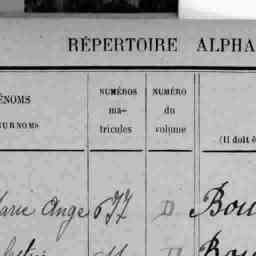 RÉPERTOIRE ALPHA
ÉNOMS
SURNOMS
NUMÉROS
ma-
tricules
NUMÉRO
du
volume
(Il doit ê
Marie Ange 677 D Bou